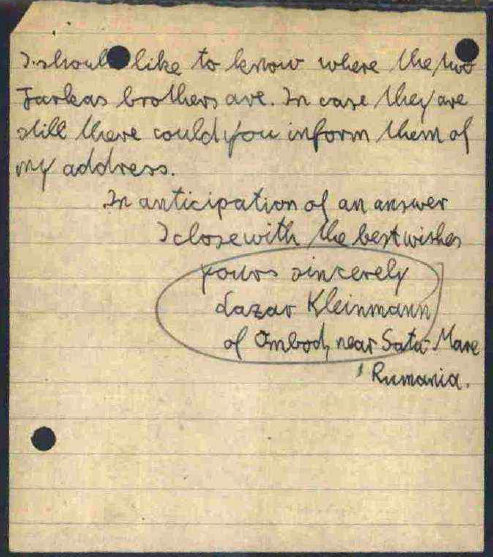 I should like to know where the two
Farkas brothers are. In case they are
still there could you inform them of
my address.
In anticipation of an answer
I close with the best wishes
yours sincerely
Lazar Kleinmann
of Ombod, near Satu-Mare
Rumania.